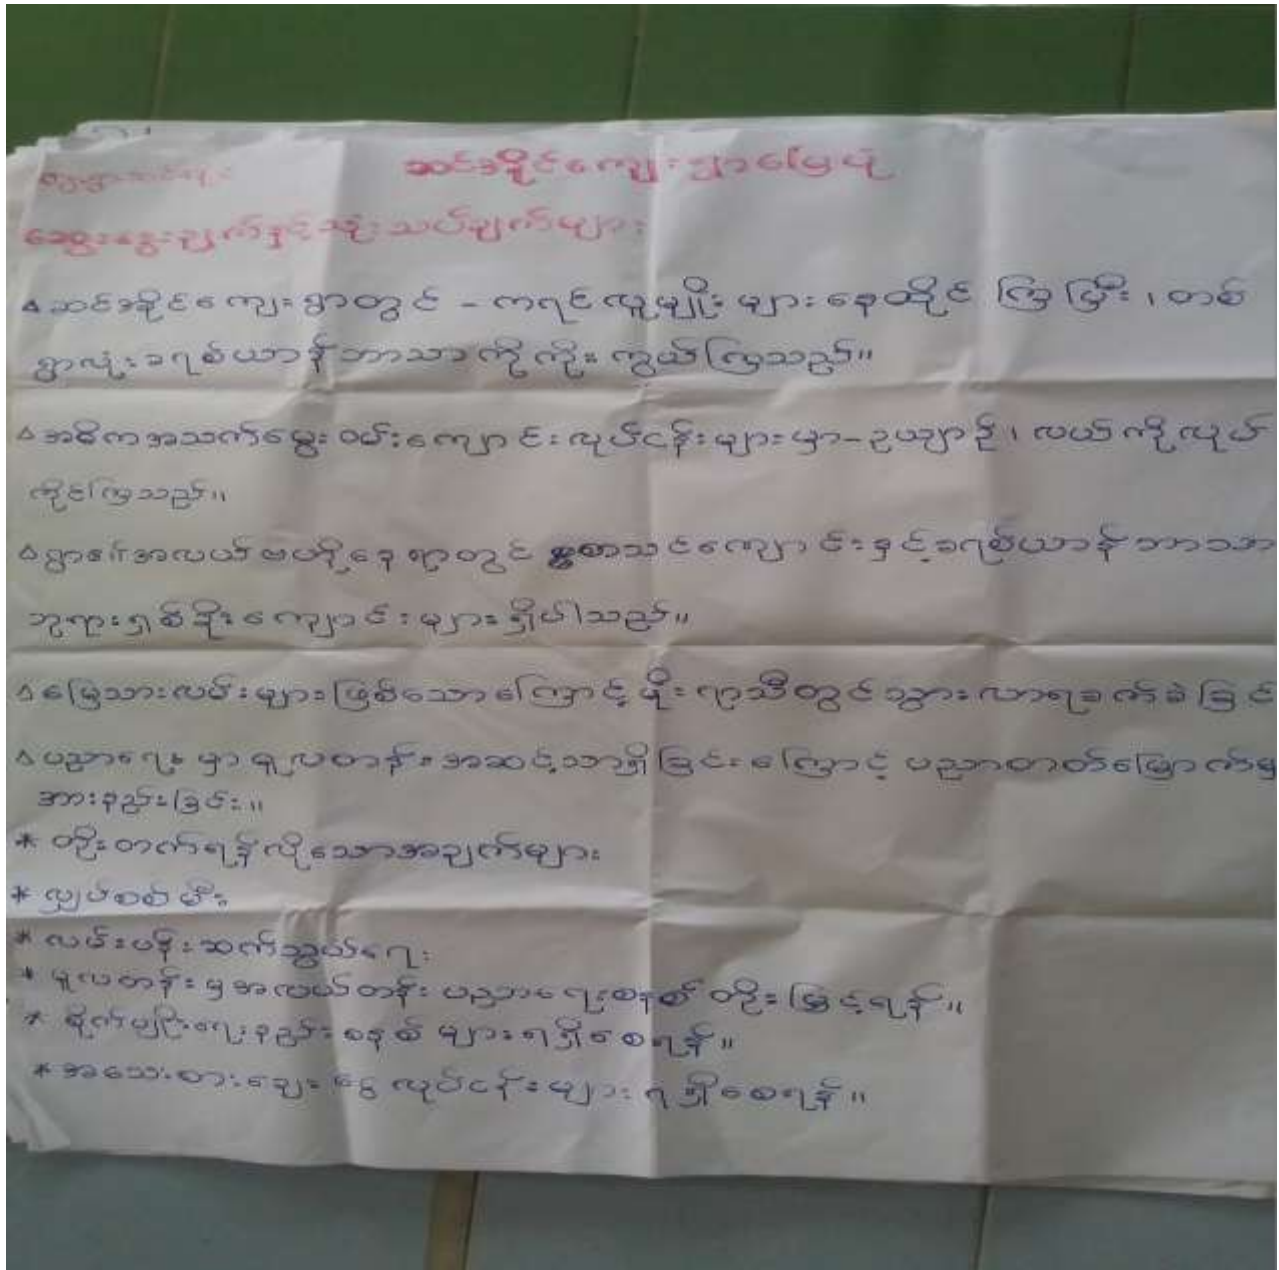 ဆင်အိုင်ကျေးရွာမြေပုံ
ဆွေးနွေးချက်နှင့်သုံးသပ်ချက်များ
∆ ဆင်အိုင်ကျေးရွာတွင် - ကရင်လူမျိုးများနေထိုင်ကြပြီး ၊ တစ်
ရွာလုံးခရစ်ယာန်ဘာသာကိုကိုးကွယ်ကြသည်။
∆ အဓိကအသက်မွေးဝမ်းကျောင်းလုပ်ငန်းများမှာ - ဥယျာဉ် ၊ လယ်ကိုလုပ်
ကိုင်ကြသည်။
∆ ရွာ၏အလယ်ဗဟိုနေရာတွင် စာသင်ကျောင်းနှင့်ခရစ်ယာန်ဘာသာ
ဘုရားရှစ်ခိုးကျောင်းများရှိပါသည်။
∆ မြေသားလမ်းများဖြစ်သောကြောင့် မိုးရာသီတွင်သွားလာရခက်ခဲခြင်
∆ ပညာရေးမှာမူလတန်းအဆင့်သာရှိခြင်းကြောင့် ပညာတတ်မြောက်မှ
အားနည်းခြင်း။
* တိုးတက်ရန်လိုသောအချက်များ
* လျှပ်စစ်မီး
* လမ်းပန်းဆက်သွယ်ရေး
* မူလတန်းမှအလယ်တန်း ပညာရေးစနစ် တိုးမြှင့်ရန်။
* စိုက်ပျိုးရေးနည်းစနစ် များရရှိစေရန်။
* အသေးစားချေးငွေ လုပ်ငန်းများ ရရှိစေရန်။